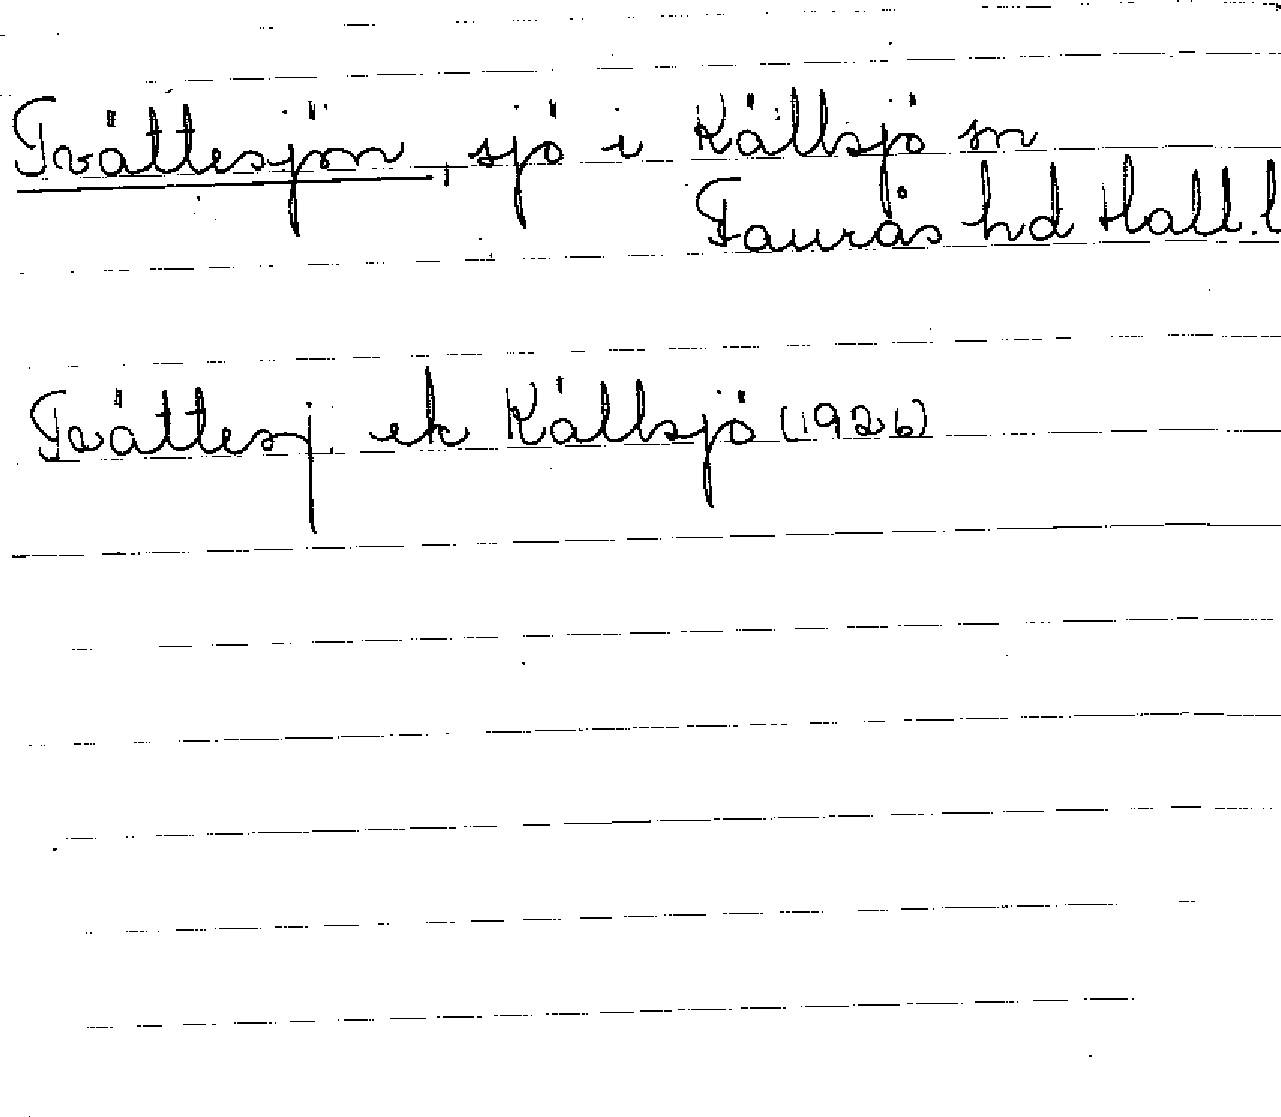 Tvättesjön, sjö i Källsjö sn
Faurås hd Hall. l
Tvättesj. ek Källsjö (1926)